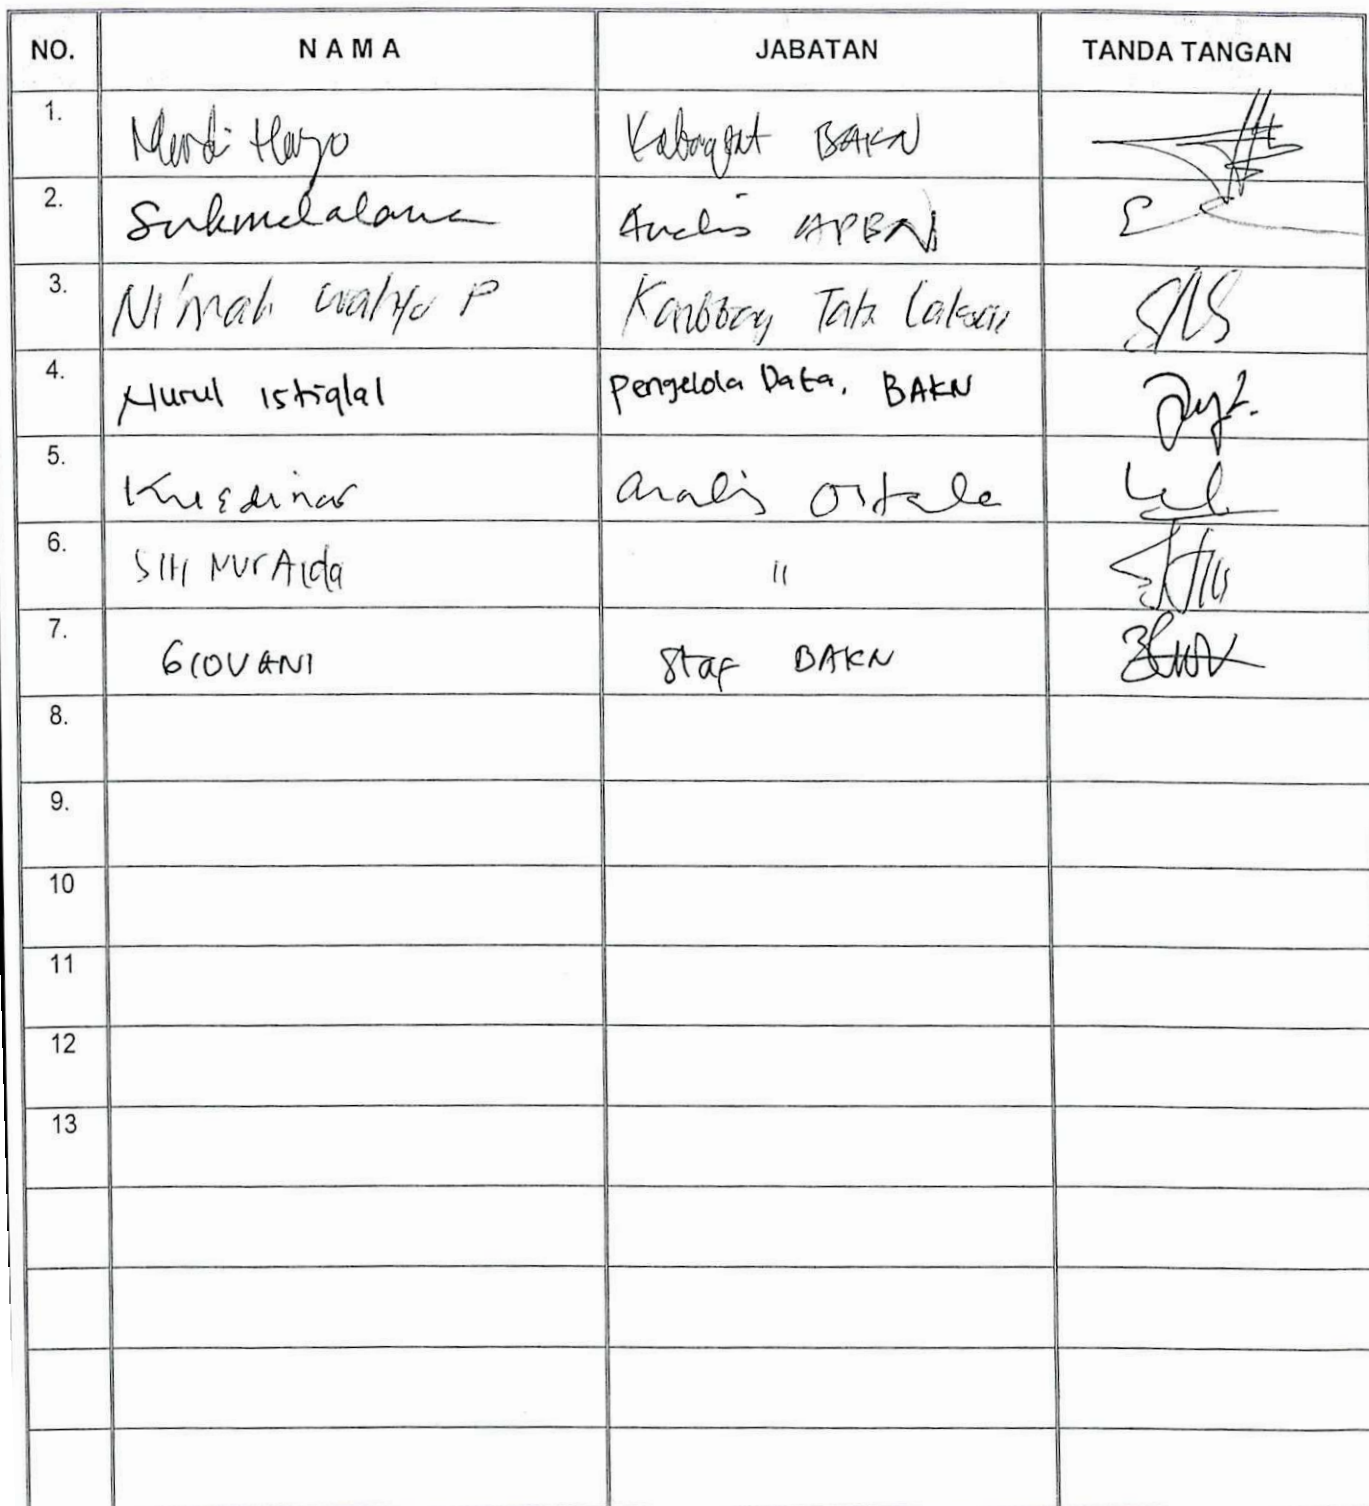 NO. NAMA JABATAN TANDA TANGAN
1. Haryo BAKN
2. Sukmalalana Analis APBN
3. Ni'mah wahyu P Tata
4. Nurul Istiqlal Pengelola Data, BAKN
5. Kresdinar analis Ortala
6. Siti NurAida "
7. GIOVANI Staf BAKN
8.
9.
10
11
12
13